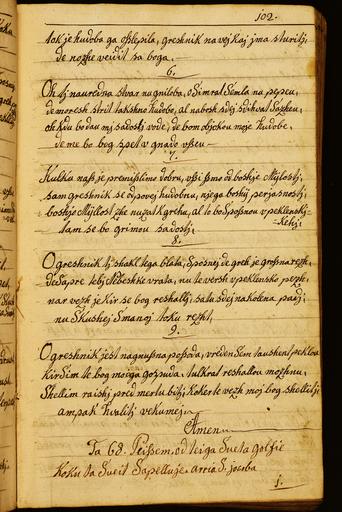 102.
tok je hudoba ga osslepila, greshnik na vej kaj jma sturiti,
de nozhe veidit sa boga.
6.
Oh tj naureidna stvar nu gniloba, odimrat Semla nu pepeu,
de moresh strit takshno hudobo, al nabosh sdej
oh bodau mj sadosti vode, de bom objokou moje hudobe,
de me bo bog spet v gnado useu
7.
Kulka nass je premisslimo dobru, ussi ssmo od boshje Milosti,
sam greshnik se odpovej hudobnu, njega boshij perjasnosti,
boshjo Milost zhe nuzat k grehu, al to bo spossnou v peklenski
kehi,
tam se bo grimou sadosti,
8.
O greshnik tj shakl tega blata, Sposnej de greh je grossna rezh,
de sapre tebi Nebeshke vrata, nu te versh v peklensko pezh,
nar vezh je kir se bog reshali, sa ta sdej na kolena padi,
nu skushej Smanoj toku rezht,
9.
O greshnik jest nagnussna possoda, vreiden sem taushent peklou
kir sim te bog mojga gospuda, tulkrat reshallou mozhnu,
Shellim raishi pred merlu bitj koker te vezh moj bog shellitj
ampak hvalitj vekumej
Amen
Ta 68. Peissem, od teiga Sueta Golfie
koku ta Sueit Sapelluje. arria S. joerba
s.